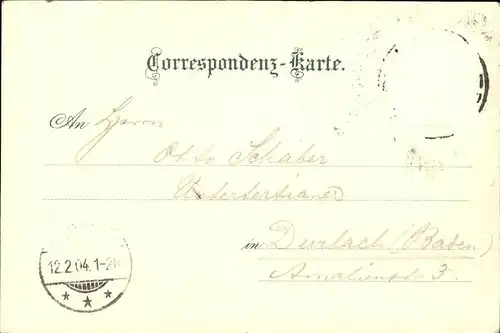 Correspondenz-Karte.
An Herrn
Otto Schaber
Untertertianer
in Durlach (Baden)
Amalienstr 3.
12.2.04.1-2N